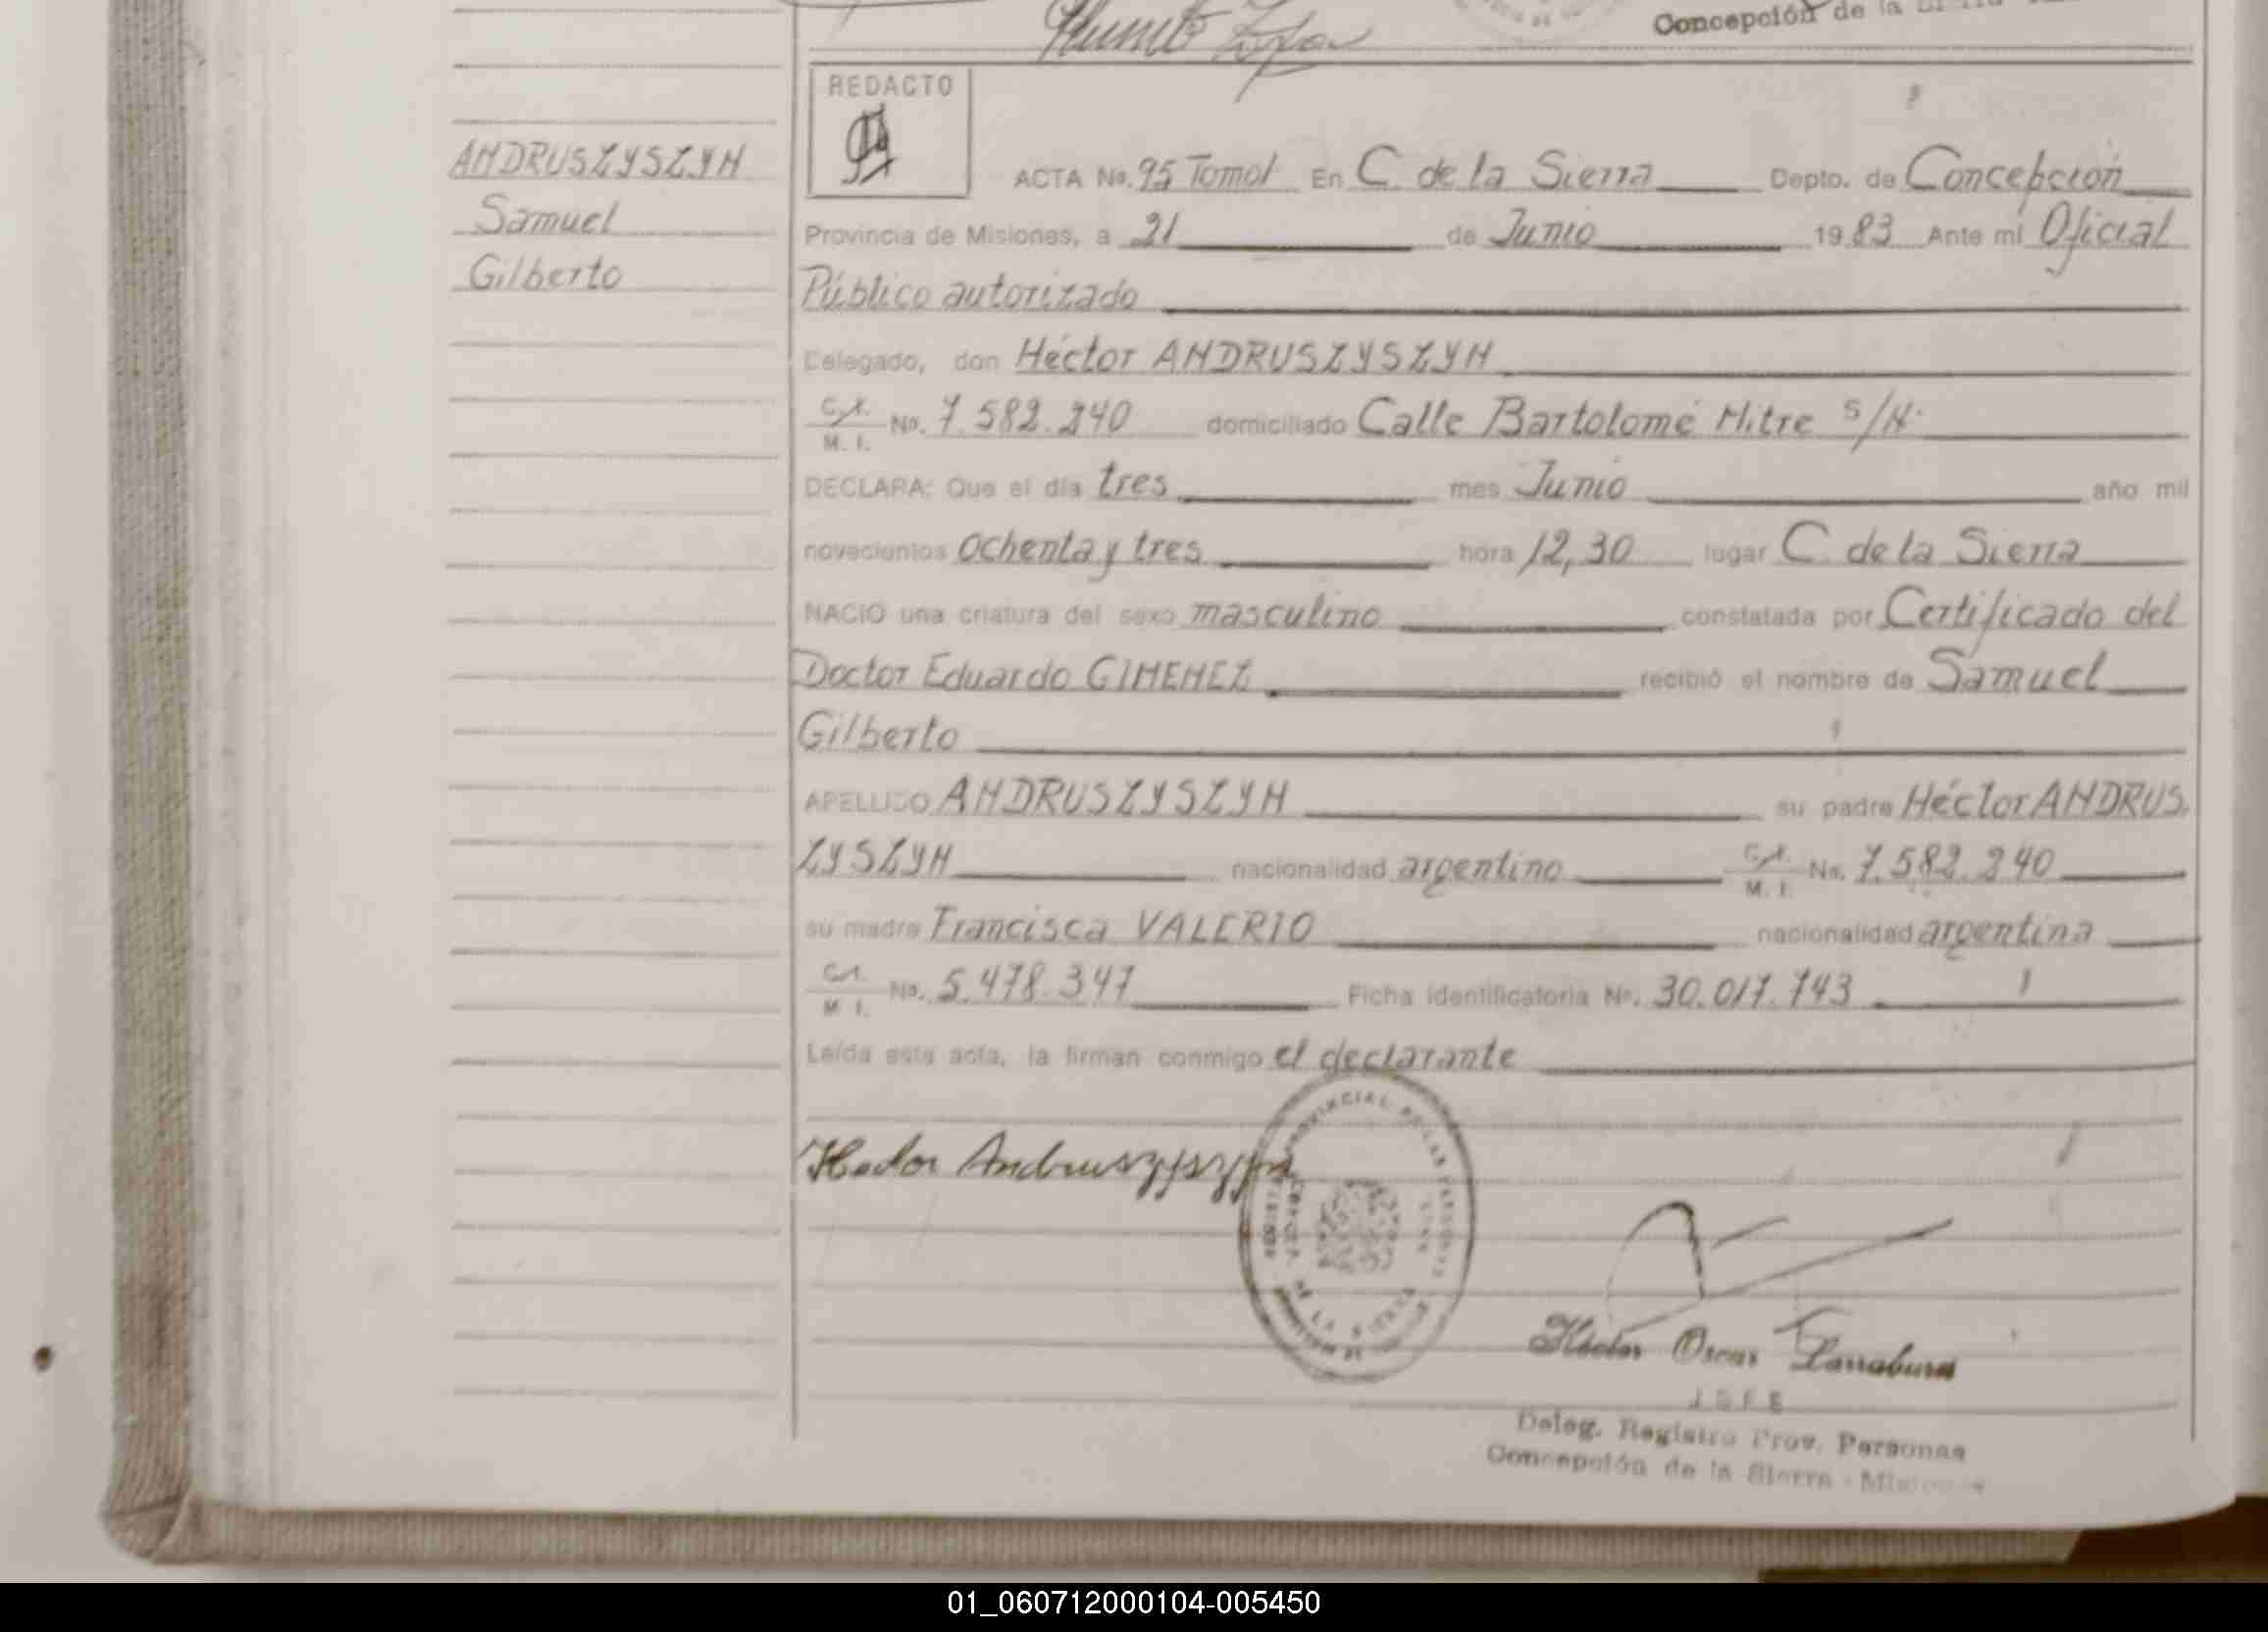 Concepción de la
REDACTO
ANDRUSZYSZYN
Samuel
Gilberto
ACTA No. 95 Tomo I En C. de la Sierra Depto. de Concepción
Provincia de Misiones, a 21 de Junio 1983 Ante mí Oficial
Público autorizado
Delegado, don Héctor ANDRUSZYSZYN
C.I. M. I. No. 7.582.240 domiciliado Calle Bartolomé Mitre S/N.
DECLARA: Que el día tres mes Junio año mil
novecientos ochenta y tres hora 12,30 lugar C. de la Sierra
NACIO una criatura del sexo masculino constatada por Certificado del
Doctor Eduardo GIMENEZ recibió el nombre de Samuel
Gilberto
APELLIDO ANDRUSZYSZYN su padre Héctor ANDRUS.
ZYSZYN nacionalidad argentino C.I. M. I. No. 7.582.240
su madre Francisca VALERIO nacionalidad argentina
C.I. M. I. No. 5.478.347 Ficha identificatoria No. 30.017.743
Leída esta acta, la firman conmigo el declarante
Hector Andruszyszyn
DE LA SIERRA
Héctor Oscar Larraburu
JEFE
Deleg. Registro Prov. Personas
Concepción de la Sierra - Misiones
01_060712000104-005450